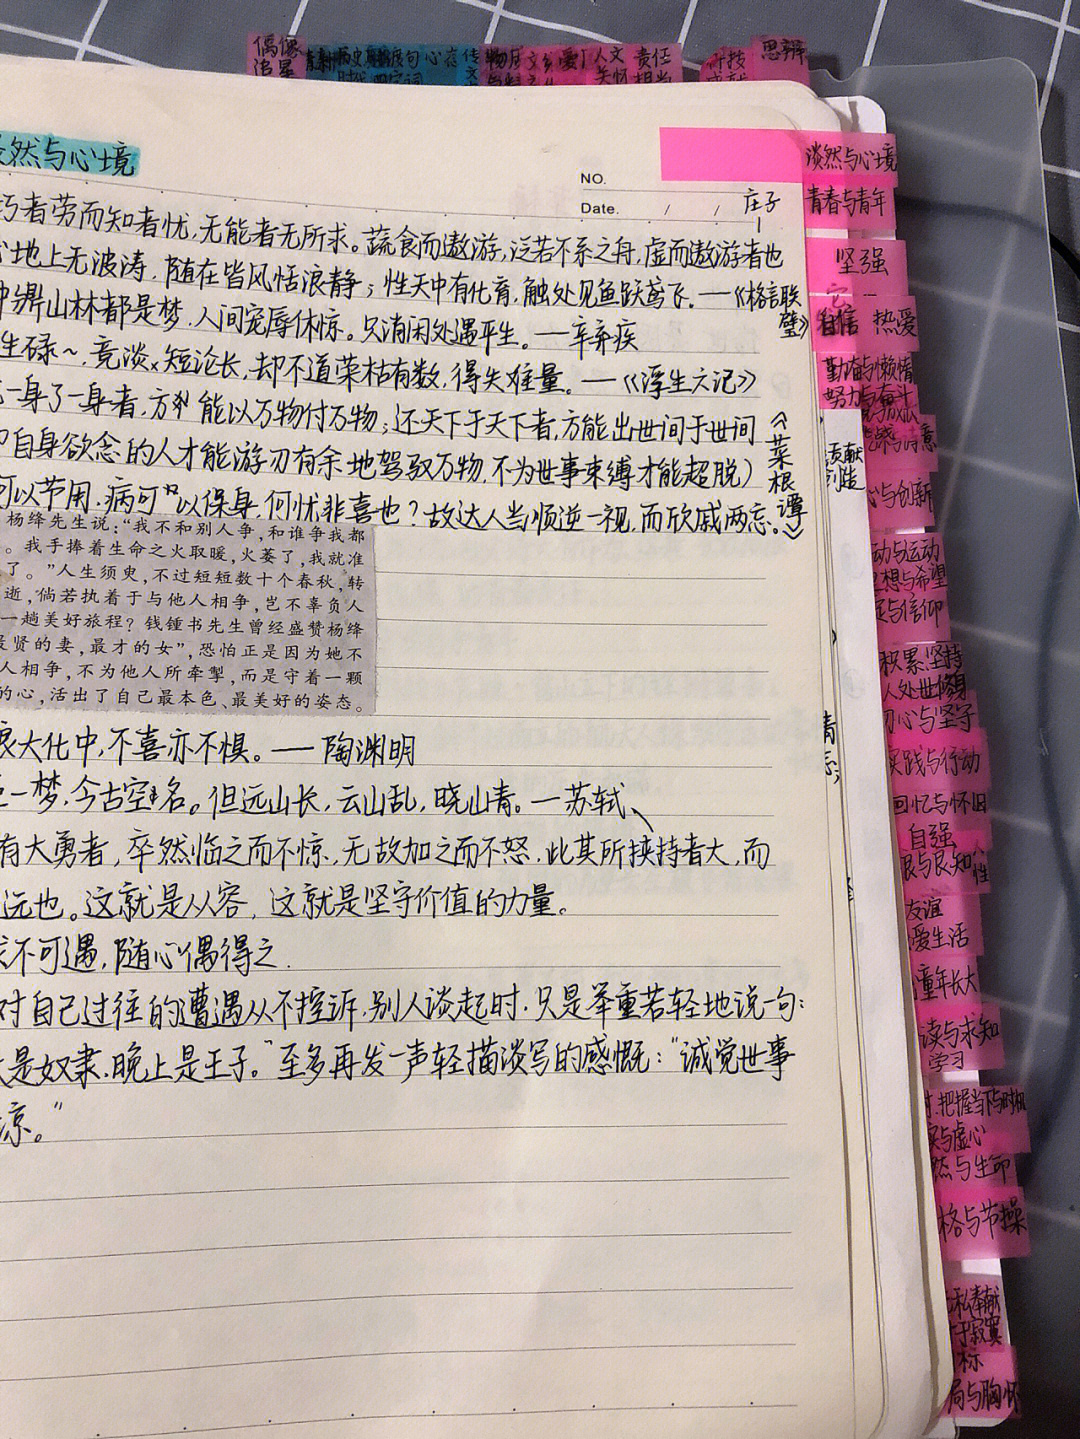 偶像
追星
心态
人文
关怀
责任
思辨
然与心境
NO.
Date. / /
庄子
巧者劳而知者忧,无能者无所求。蔬食而遨游,泛若不系之舟,虚而遨游者也
地上无波涛,随在皆风恬浪静;性天中有化育,触处见鱼跃鸢飞。——《格言联璧》
钟鼎山林都是梦,人间宠辱休惊。只消闲处遇平生。——辛弃疾
生碌~,竞淡x短论长,却不道荣枯有数,得失难量。——《浮生六记》
一身了一身者,方能以万物付万物;还天下于天下者,方能出世间于世间
自身欲念的人才能游刃有余地驾驭万物,不为世事束缚才能超脱)
可以节用,病可以保身,何忧非喜也?故达人当顺逆一视,而欣戚两忘。
《菜根谭》
杨绛先生说:“我不和别人争,和谁争我都
。我手捧着生命之火取暖,火萎了,我就准
了。”人生须臾,不过短短数十个春秋,转
逝,倘若执着于与他人相争,岂不辜负人
一趟美好旅程?钱锺书先生曾经盛赞杨绛
最贤的妻,最才的女”,恐怕正是因为她不
人相争,不为他人所牵掣,而是守着一颗
的心,活出了自己最本色、最美好的姿态。
浪大化中,不喜亦不惧。——陶渊明
一梦,今古空名。但远山长,云山乱,晓山青。—苏轼
有大勇者,卒然临之而不惊,无故加之而不怒,此其所挟持者大,而
远也。这就是从容,这就是坚守价值的力量。
不可遇,随心偶得之.
对自己过往的遭遇从不控诉,别人谈起时,只是举重若轻地说一句:
是奴隶,晚上是王子。”至多再发一声轻描淡写的感慨:“诚觉世事
凉。”
淡然与心境
青春与青年
坚强
自信 热爱
勤奋与懒惰
努力与奋斗
贡献
心与创新
动与运动
想与希望
与信仰
积累,坚持
人处世修身
初心与坚守
实践与行动
回忆与怀旧
自强
良知
人性
友谊
爱生活
童年长大
读与求知
学习
把握当下与时机
实与虚心
然与生命
格与节操
私奉献
于寂寞
标
局与胸怀